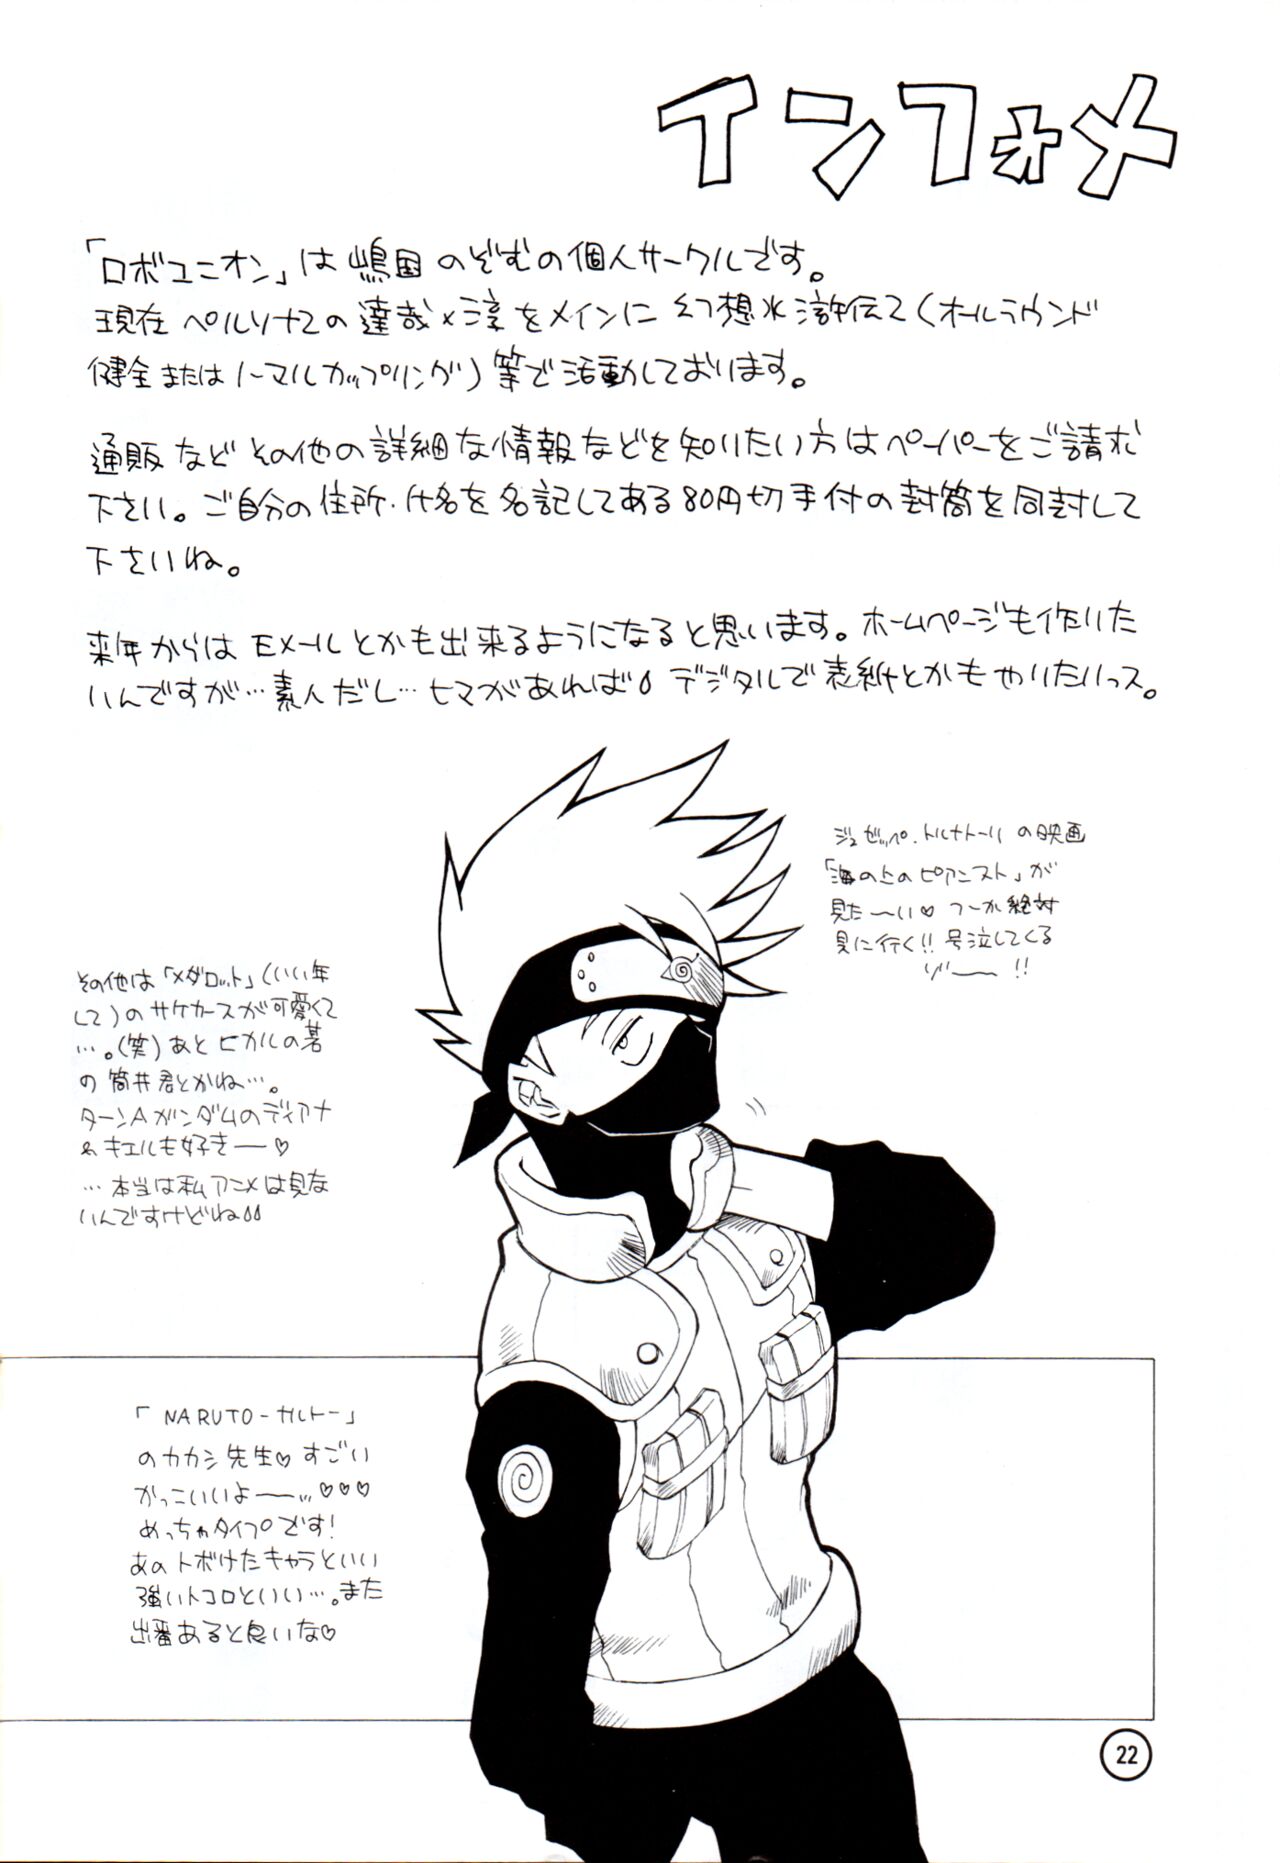 インフォメ
「ロボユニオン」は嶋国のぞむの個人サークルです。
現在ペルソナ2の達哉×淳をメインに幻想水滸伝2(オールラウンド
健全またはノーマルカップリング)等で活動しております。
通販などその他の詳細な情報などを知りたい方はペーパーをご請求
下さい。ご自分の住所・氏名を名記してある80円切手付の封筒を同封して
下さいね。
来年からはEメールとかも出来るようになると思います。ホームページも作りた
いんですが…素人だし…ヒマがあれば デジタルで表紙とかもやりたいっス。
ジュゼッペ・トルナトーレの映画
「海の上のピアニスト」が
見た〜い♡つーか絶対
見に行く!!号泣してくる
ゾ〜!!
その他は「メダロット」(いい年
して)のサケカースが可愛くて
…。(笑)あとヒカルの碁
の筒井君とかね…。
ターンAガンダムのディアナ
&キエルも好きー♡
…本当は私アニメは見な
いんですけどね
「NARUTO-ナルトー」
のカカシ先生♡すごい
かっこいいよー…♡♡♡
めっちゃタイプです!
あのトボけたキャラといい
強いトコロといい…。また
出番あると良いな♡
22